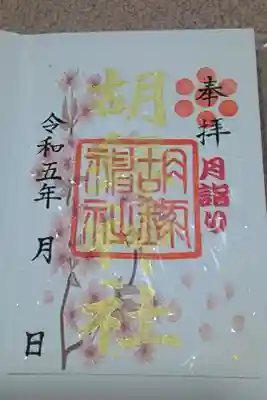 奉拝
月詣り
胡録神社
胡録
神社
令和五年 月 日